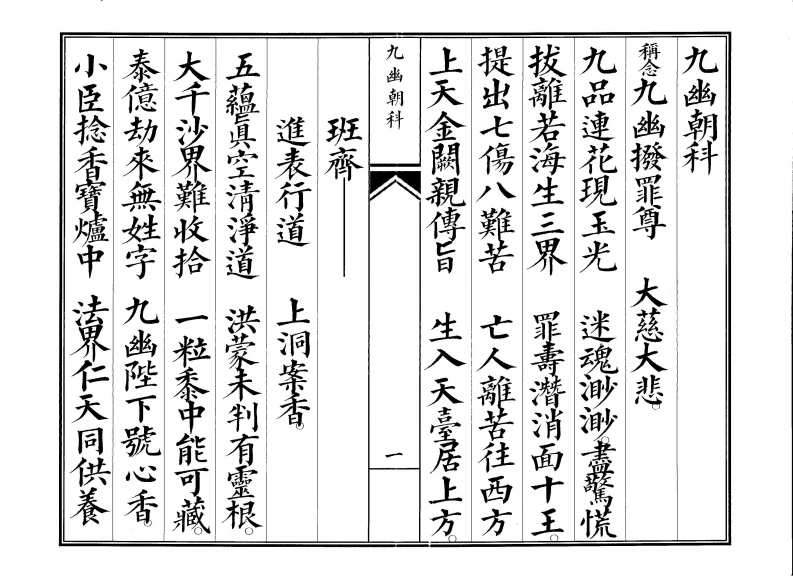 九幽朝科
稱念九幽撥罪尊　大慈大悲。
九品連花現玉光　迷魂渺渺。盡驚慌
拔離若海生三界　罪壽潛消面十王。
提出七傷八難苦　亡人離苦往西方
上天金闕親傳旨　生入天臺居上方。
九幽朝科　一
班齊
進表行道　上洞案香。
五蘊真空清淨道　洪蒙未判有靈根。
大千沙界難收拾　一粒黍中能可藏。
泰億劫來無姓字　九幽陛下號心香。
小臣捻香寶爐中　法界仁天同供養